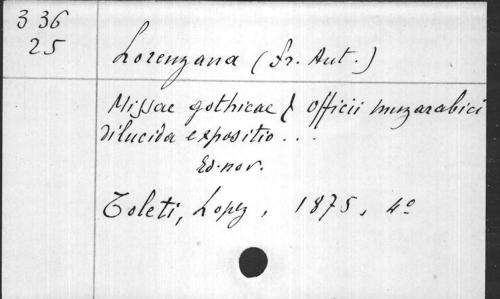 336
25
Lorenzana (Fr. Ant.)
Missae gothicae & officii muzarabici
dilucida expositio ...
Ed. nov.
Toleti, Lopez, 1875, 4º